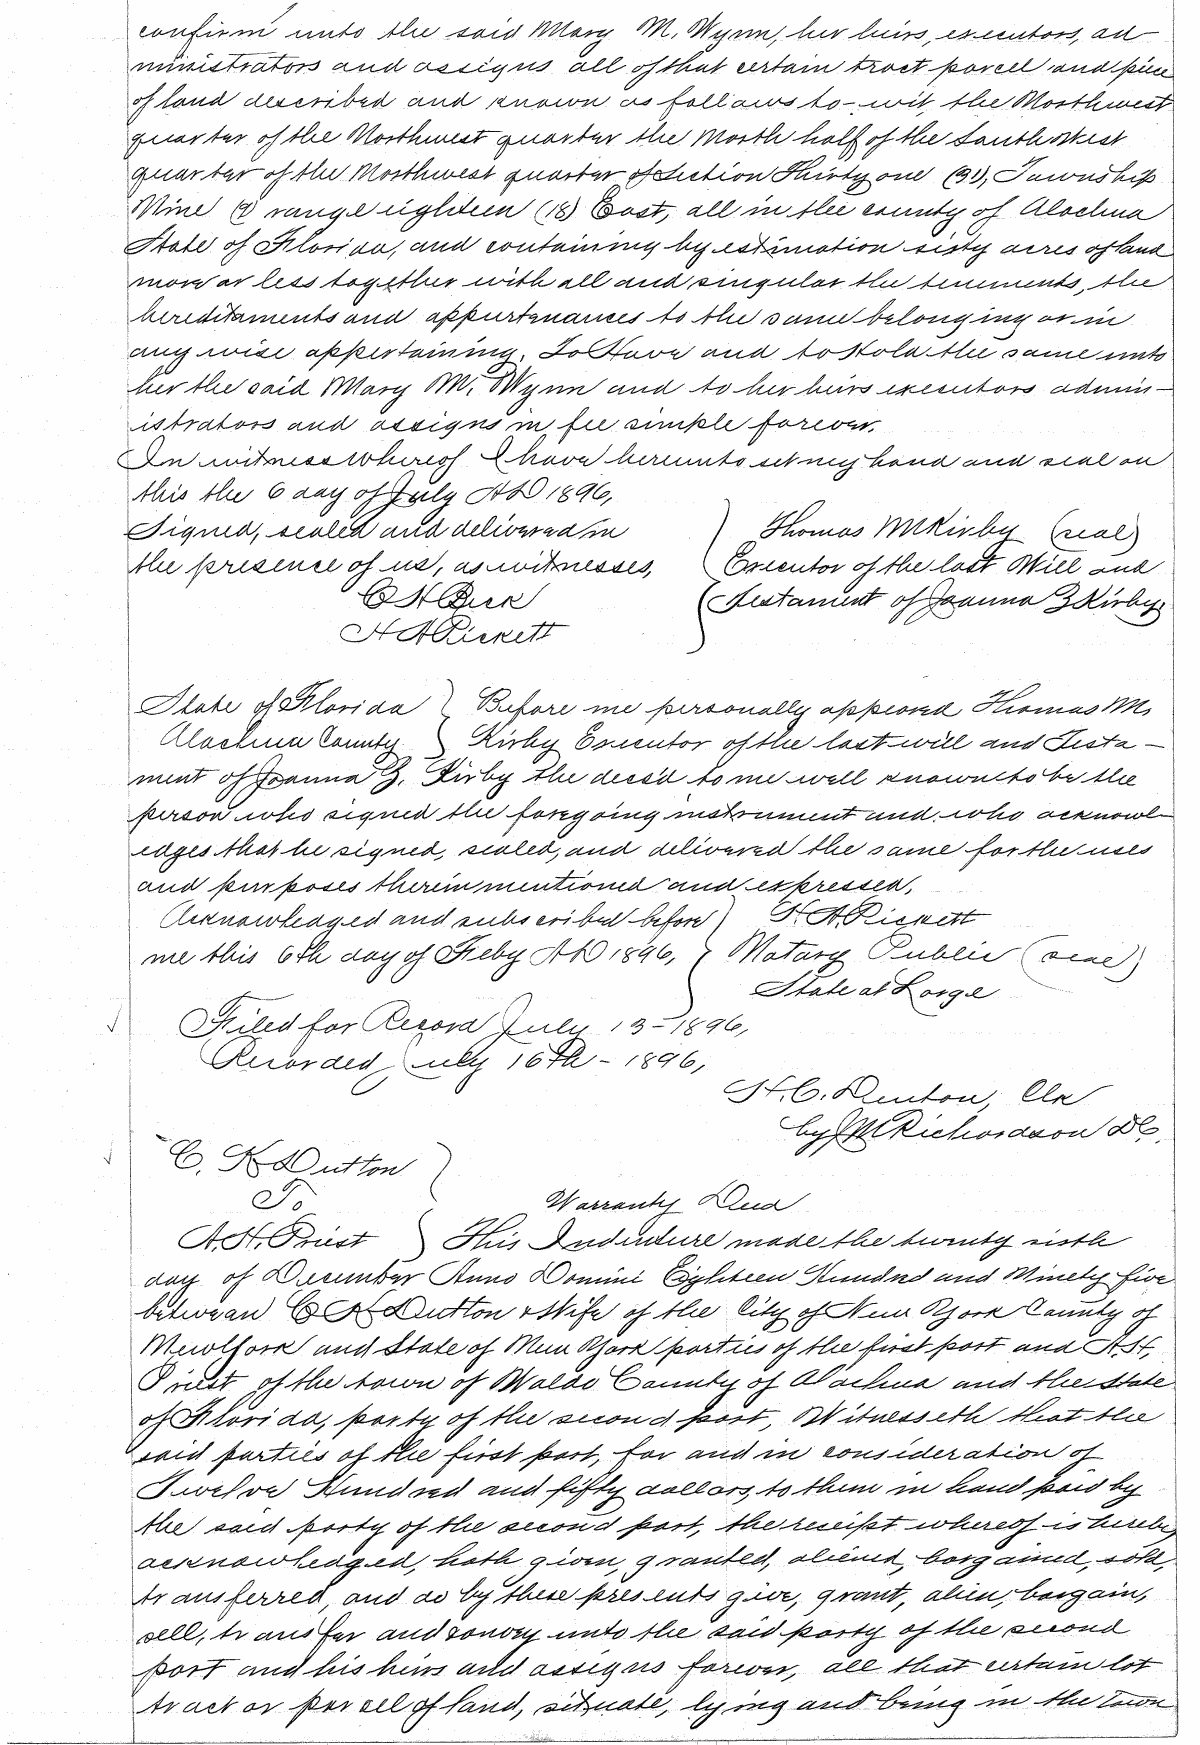 confirm unto the said Mary M. Wynn, her heirs, executors, ad-
ministrators and assigns all of that certain tract parcell and piece
of land described and known as follows to-wit, the Northwest
quarter of the Northwest quarter the North half of the Southwest
quarter of the Northwest quarter of Section Thirty one (31), Township
Nine (9) range eighteen (18) East, all in the county of Alachua
State of Florida, and containing by estimation sixty acres of land
more or less together with all and singular the tenements, the
hereditaments and appurtenances to the same belonging or in
any wise appertaining. To Have and to Hold the same unto
her the said Mary M. Wynn and to her heirs executors admin-
istrators and assigns in fee simple forever.
In witness whereof I have hereunto set my hand and seal on
this the 6 day of July AD 1896,
Signed, sealed and delivered in
the presence of us, as witnesses,
Thomas M Kirby (seal)
Executor of the last Will and
Testament of Joanna Z Kirby
C H Beck
H A Rickett
State of Florida
Alachua County
Before me personally appeared Thomas M.
Kirby Executor of the last will and Testa-
ment of Joanna Z. Kirby the decs'd to me well known to be the
person who signed the foregoing instrument and who acknowl-
edges that he signed, sealed, and delivered the same for the uses
and purposes therein mentioned and expressed,
Acknowledged and subscribed before
me this 6th day of Feby AD 1896,
H. A. Rickett
Notary Public (seal)
State at Large
Filed for Record July 13-1896,
Recorded July 16th-1896,
H. C. Denton, Clk
by J M Richardson DC.
C. K Dutton
To
A. H. Priest
Warranty Deed
This Indenture made the twenty sixth
day of December Anno Domini Eighteen Hundred and Ninety five
between C K Dutton & Wife of the City of New York County of
New York and State of New York parties of the first part and A. H.
Priest of the town of Waldo County of Alachua and the State
of Florida, party of the second part, Witnesseth that the
said parties of the first part, for and in consideration of
Twelve Hundred and fifty dollars, to them in hand paid by
the said party of the second part, the receipt whereof is hereby
acknowledged, hath given, granted, aliened, bargained, sold,
transferred, and do by these presents give, grant, alien, bargain,
sell, transfer and convey unto the said party of the second
part and his heirs and assigns forever, all that certain lot
tract or parcel of land, situate, lying and being in the town